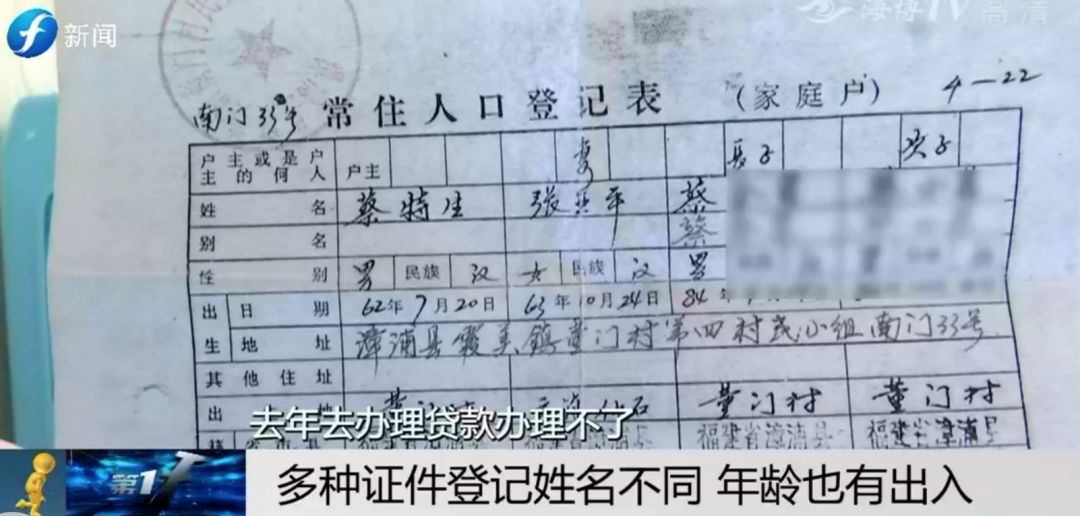 新闻 海博TV 高清
南门33号 常住人口登记表 (家庭户) 4—22
户主或是户主的何人 户主 妻 长子 次子
姓名 蔡特生 张 平 蔡
别名 蔡
性别 男 民族 汉 女 民族 汉 男
出生 日期 62年7月20日 63年10月24日 84年
地址 漳浦县霞美镇董门村第四村民小组南门33号
其他住址
出 地 董门村 董门村
福建省漳浦县 福建省漳浦县
去年去办理贷款办理不了
第1
多种证件登记姓名不同 年龄也有出入